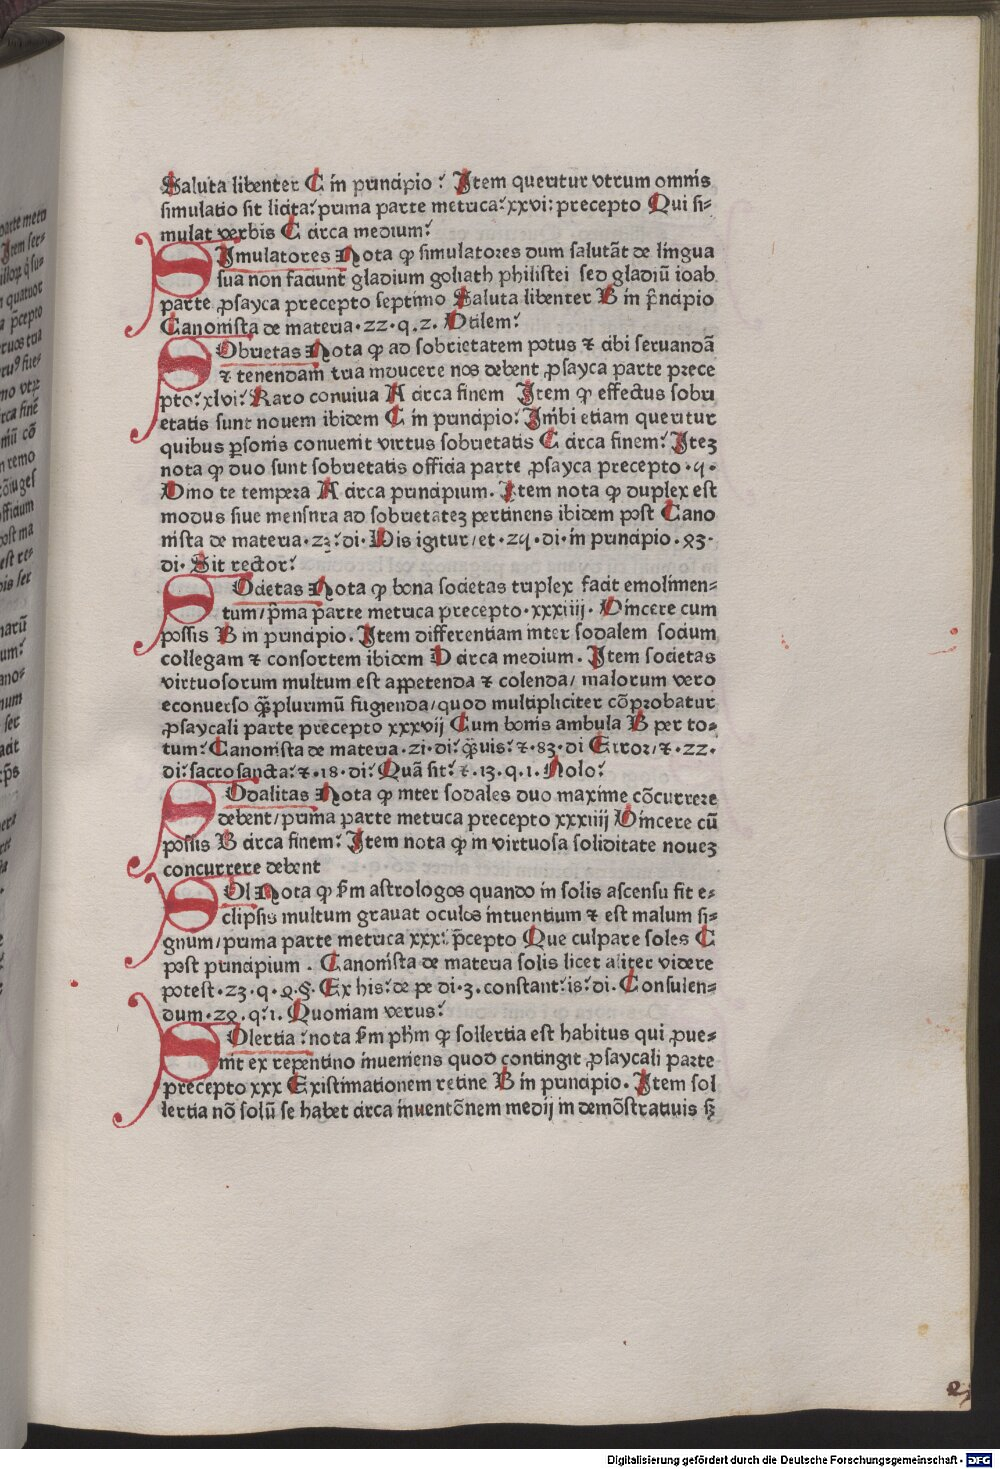 Saluta libenter C in principio: Item queritur vtrum omnis
simulatio sit licita: prima parte metrica: xxvi: precepto Qui si⸗
mulat verbis C circa medium:
SImulatores Nota ꝙ simulatores dum salutāt de lingua
sua non faciunt gladium goliath philistei sed gladiū ioab
parte ꝓsayca precepto septimo Saluta libenter B in p̄ncipio
Canonista de materia·22·q.2. Vtilem:
SObrietas Nota ꝙ ad sobrietatem potus ⁊ cibi seruandā
⁊ tenendam tria inducere nos debent ꝓsayca parte prece
pto: xlvi: Raro conuiua A circa finem Item ꝙ effectus sobri
etatis sunt nouem ibidem C in principio: Inibi etiam queritur
quibus ꝑsonis conuenit virtus sobrietatis C circa finem: Iteꝫ
nota ꝙ duo sunt sobrietatis officia parte ꝓsayca precepto·ij·
Vino te tempera A circa principium. Item nota ꝙ duplex est
modus siue mensura ad sobrietateꝫ pertinens ibidem post Cano
nista de materia·23:di·Vis igitur/et·24·di·in principio·83·
di· Sit rector:
SOcietas Nota ꝙ bona societas triplex facit emolimen⸗
tum/p̄ma parte metrica precepto·xxxiiij·Vincere cum
possis B in principio. Item differentiam inter sodalem socium
collegam ⁊ consortem ibidem D circa medium. Item societas
virtuosorum multum est appetenda ⁊ colenda/malorum vero
econuerso ꝙ̄plurimū fugienda/quod multipliciter cōprobatur
ꝓsaycali parte precepto xxxvij Cum bonis ambula B per to⸗
tum: Canonista de materia·21·di:ꝙ̄uis:⁊·83·di Error/⁊·22·
di: sacrosancta:⁊·18·di: Quā sit:⁊·13·q.1. Nolo:
SOdalitas Nota ꝙ inter sodales duo maxime cōcurrere
debent/prima parte metrica precepto xxxiiij Vincere cū
possis B circa finem: Item nota ꝙ in virtuosa soliditate noueꝫ
concurrere debent
SOl Nota ꝙ ẜm astrologos quando in solis ascensu fit e⸗
clipsis multum grauat oculos intuentium ⁊ est malum si⸗
gnum/prima parte metrica xxx: p̄cepto Que culpare soles C
post principium. Canonista de materia solis licet aliter videre
potest·23·q·8·§·Ex his: de pe di·3·constant: is: di·Consulen⸗
dum·28·q:1. Quoniam verus:
SOlertia: nota ẜm ph̄m ꝙ sollertia est habitus qui ꝓue⸗
nit ex repentino inueniens quod contingit ꝓsaycali parte
precepto xxx Existimationem retine B in principio. Item sol
lertia nō solū se habet circa inuentōnem medij in demōstratiuis sꝫ
Digitalisierung gefördert durch die Deutsche Forschungsgemeinschaft - DFG